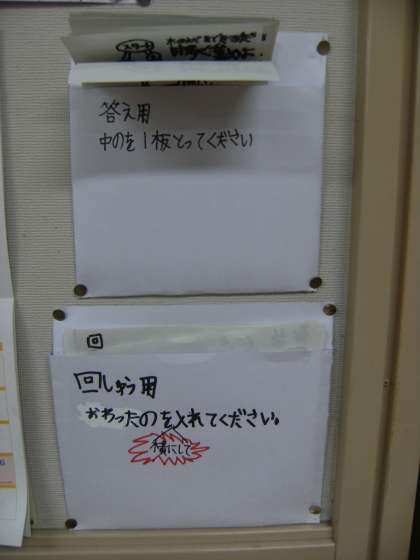 答え用
中のを1板とってください
回
回しゅう用
かわったのを入れてください。
横にして